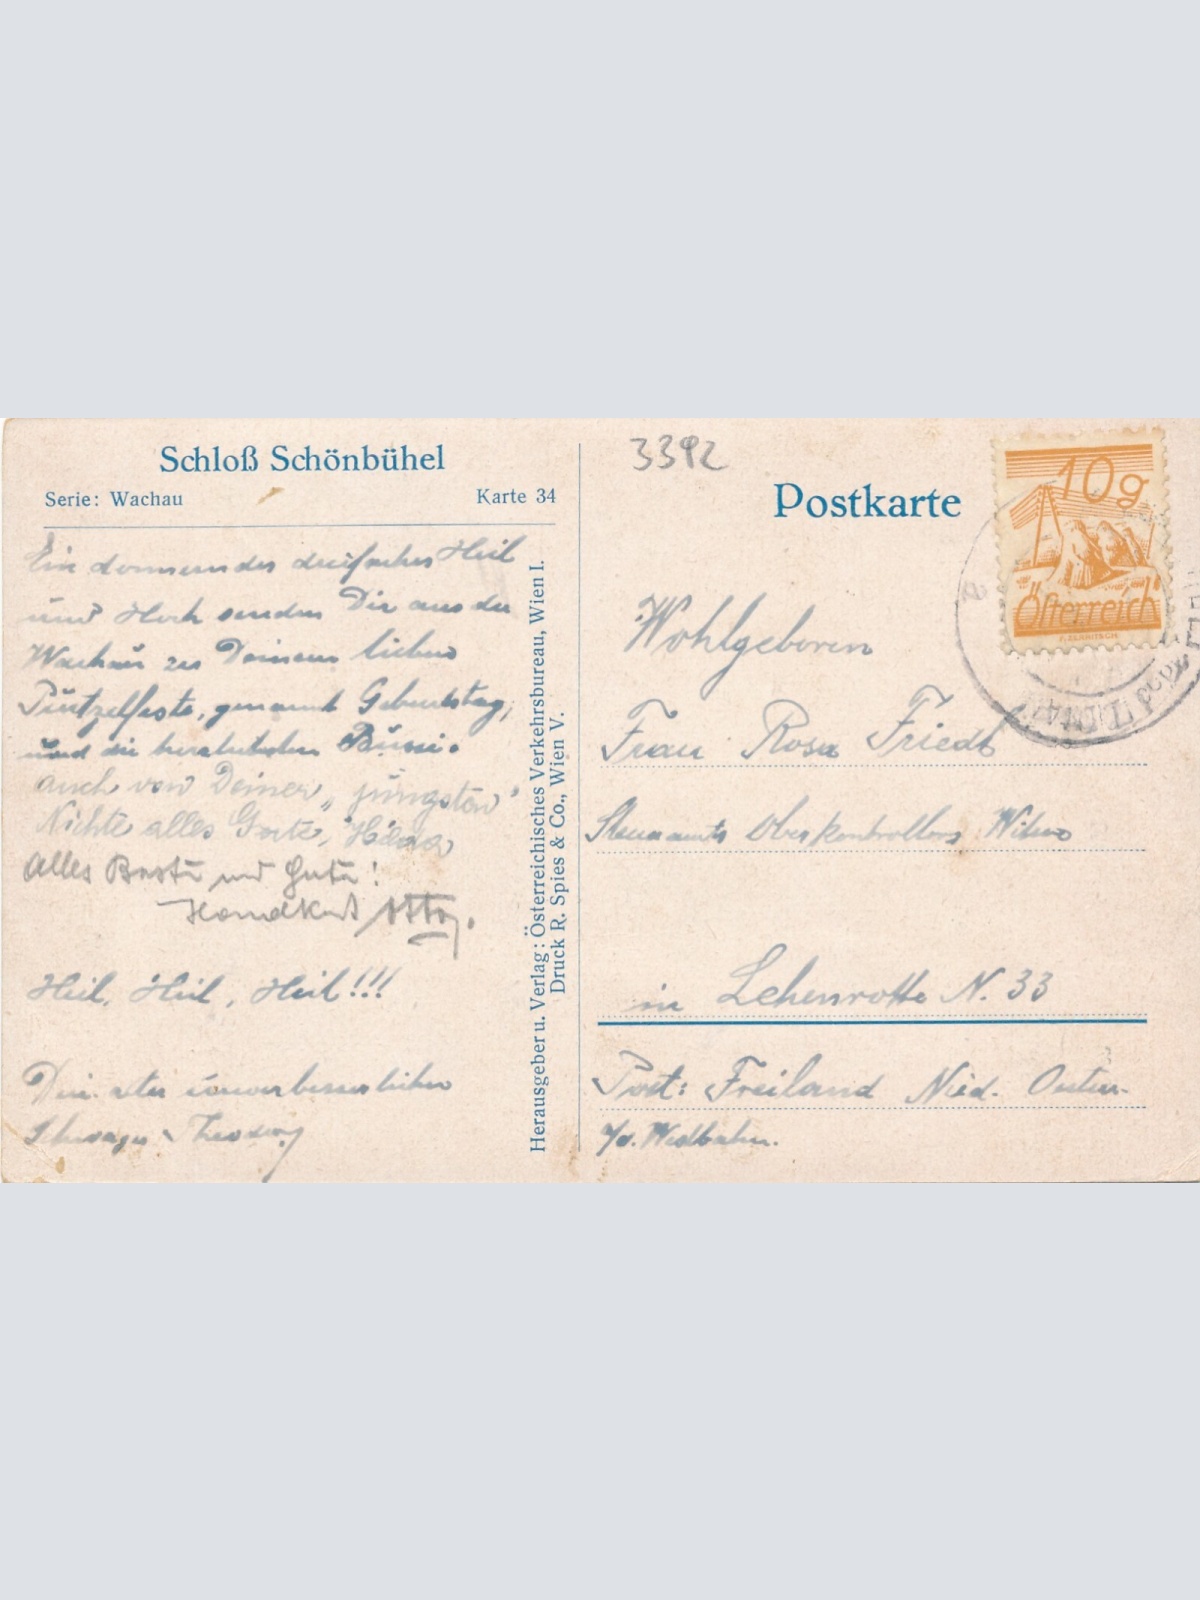 Schloß Schönbühel
Serie: Wachau
Karte 34
Ein donnerndes dreifaches Heil
und Hoch senden Dir aus der
Wachau zu Deinem lieben
Purzelfeste, genannt Geburtstag,
und die herzlichsten Bussi.
auch von Deiner „jüngsten"
Nichte alles Gute,
Alles Beste und Gute!
Heil, Heil, Heil!!!
Dein alter unverbesserlicher
Schwager Theodor
Herausgeber u. Verlag: Österreichisches Verkehrsbureau, Wien I.
Druck R. Spies & Co., Wien V.
3392
Postkarte
10g
Österreich
Wohlgeboren
Frau Rosa Friedl
Steueramts Oberkontrollors Witwe
in Lehenrotte N. 33
Post: Freiland Nied. Oester.
Westbahn.